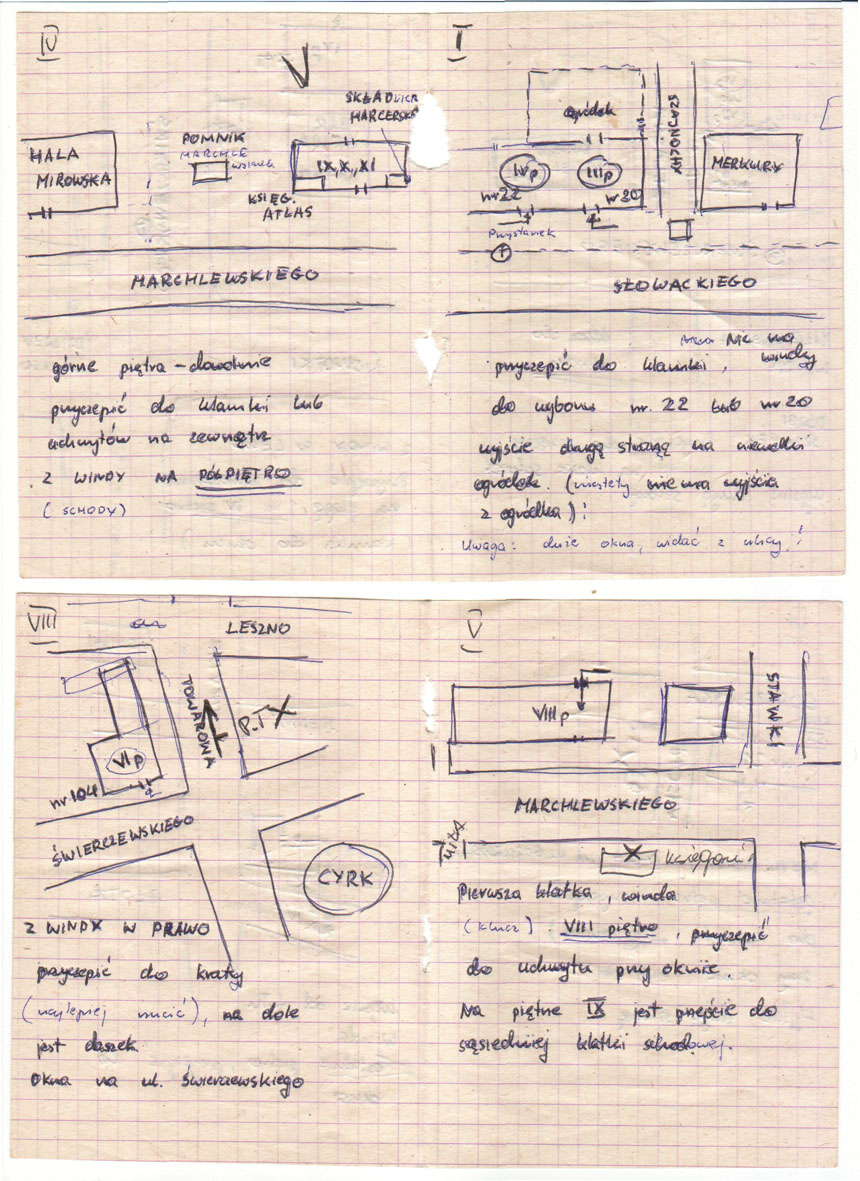 IV
SKŁADNICA
HARCERSKA
POMNIK
MARCHLE
WSKIEGO
HALA
MIROWSKA
IX, X, XI
KSIĘG.
ATLAS
MARCHLEWSKIEGO
górne piętra – dowolne
przyczepić do klamki lub
uchwytów na zewnątrz
Z WINDY NA PÓŁPIĘTRO
(SCHODY)
I
ogródek
SZAJNOCHY
MERKURY
IV p
III p
nr 22
nr 20
Przystanek
SŁOWACKIEGO
Nie ma
windy
przyczepić do klamki,
do wyboru nr. 22 lub nr 20
wyjście drugą stroną na niewielki
ogródek. (niestety nie ma wyjścia
z ogródka)!
Uwaga: duże okna, widać z ulicy!
VIII
LESZNO
TOWAROWA
P.T X
VI p
nr 104
ŚWIERCZEWSKIEGO
CYRK
Z WINDY W PRAWO
przyczepić do kraty
(najlepiej rzucić), na dole
jest daszek.
Okna na ul. Świerczewskiego
V
VIII p
STAWKI
MARCHLEWSKIEGO
X księgarnia
Pierwsza klatka, winda
(klucz). VIII piętro, przyczepić
do uchwytu przy oknie.
Na piętrze IX jest przejście do
sąsiedniej klatki schodowej.